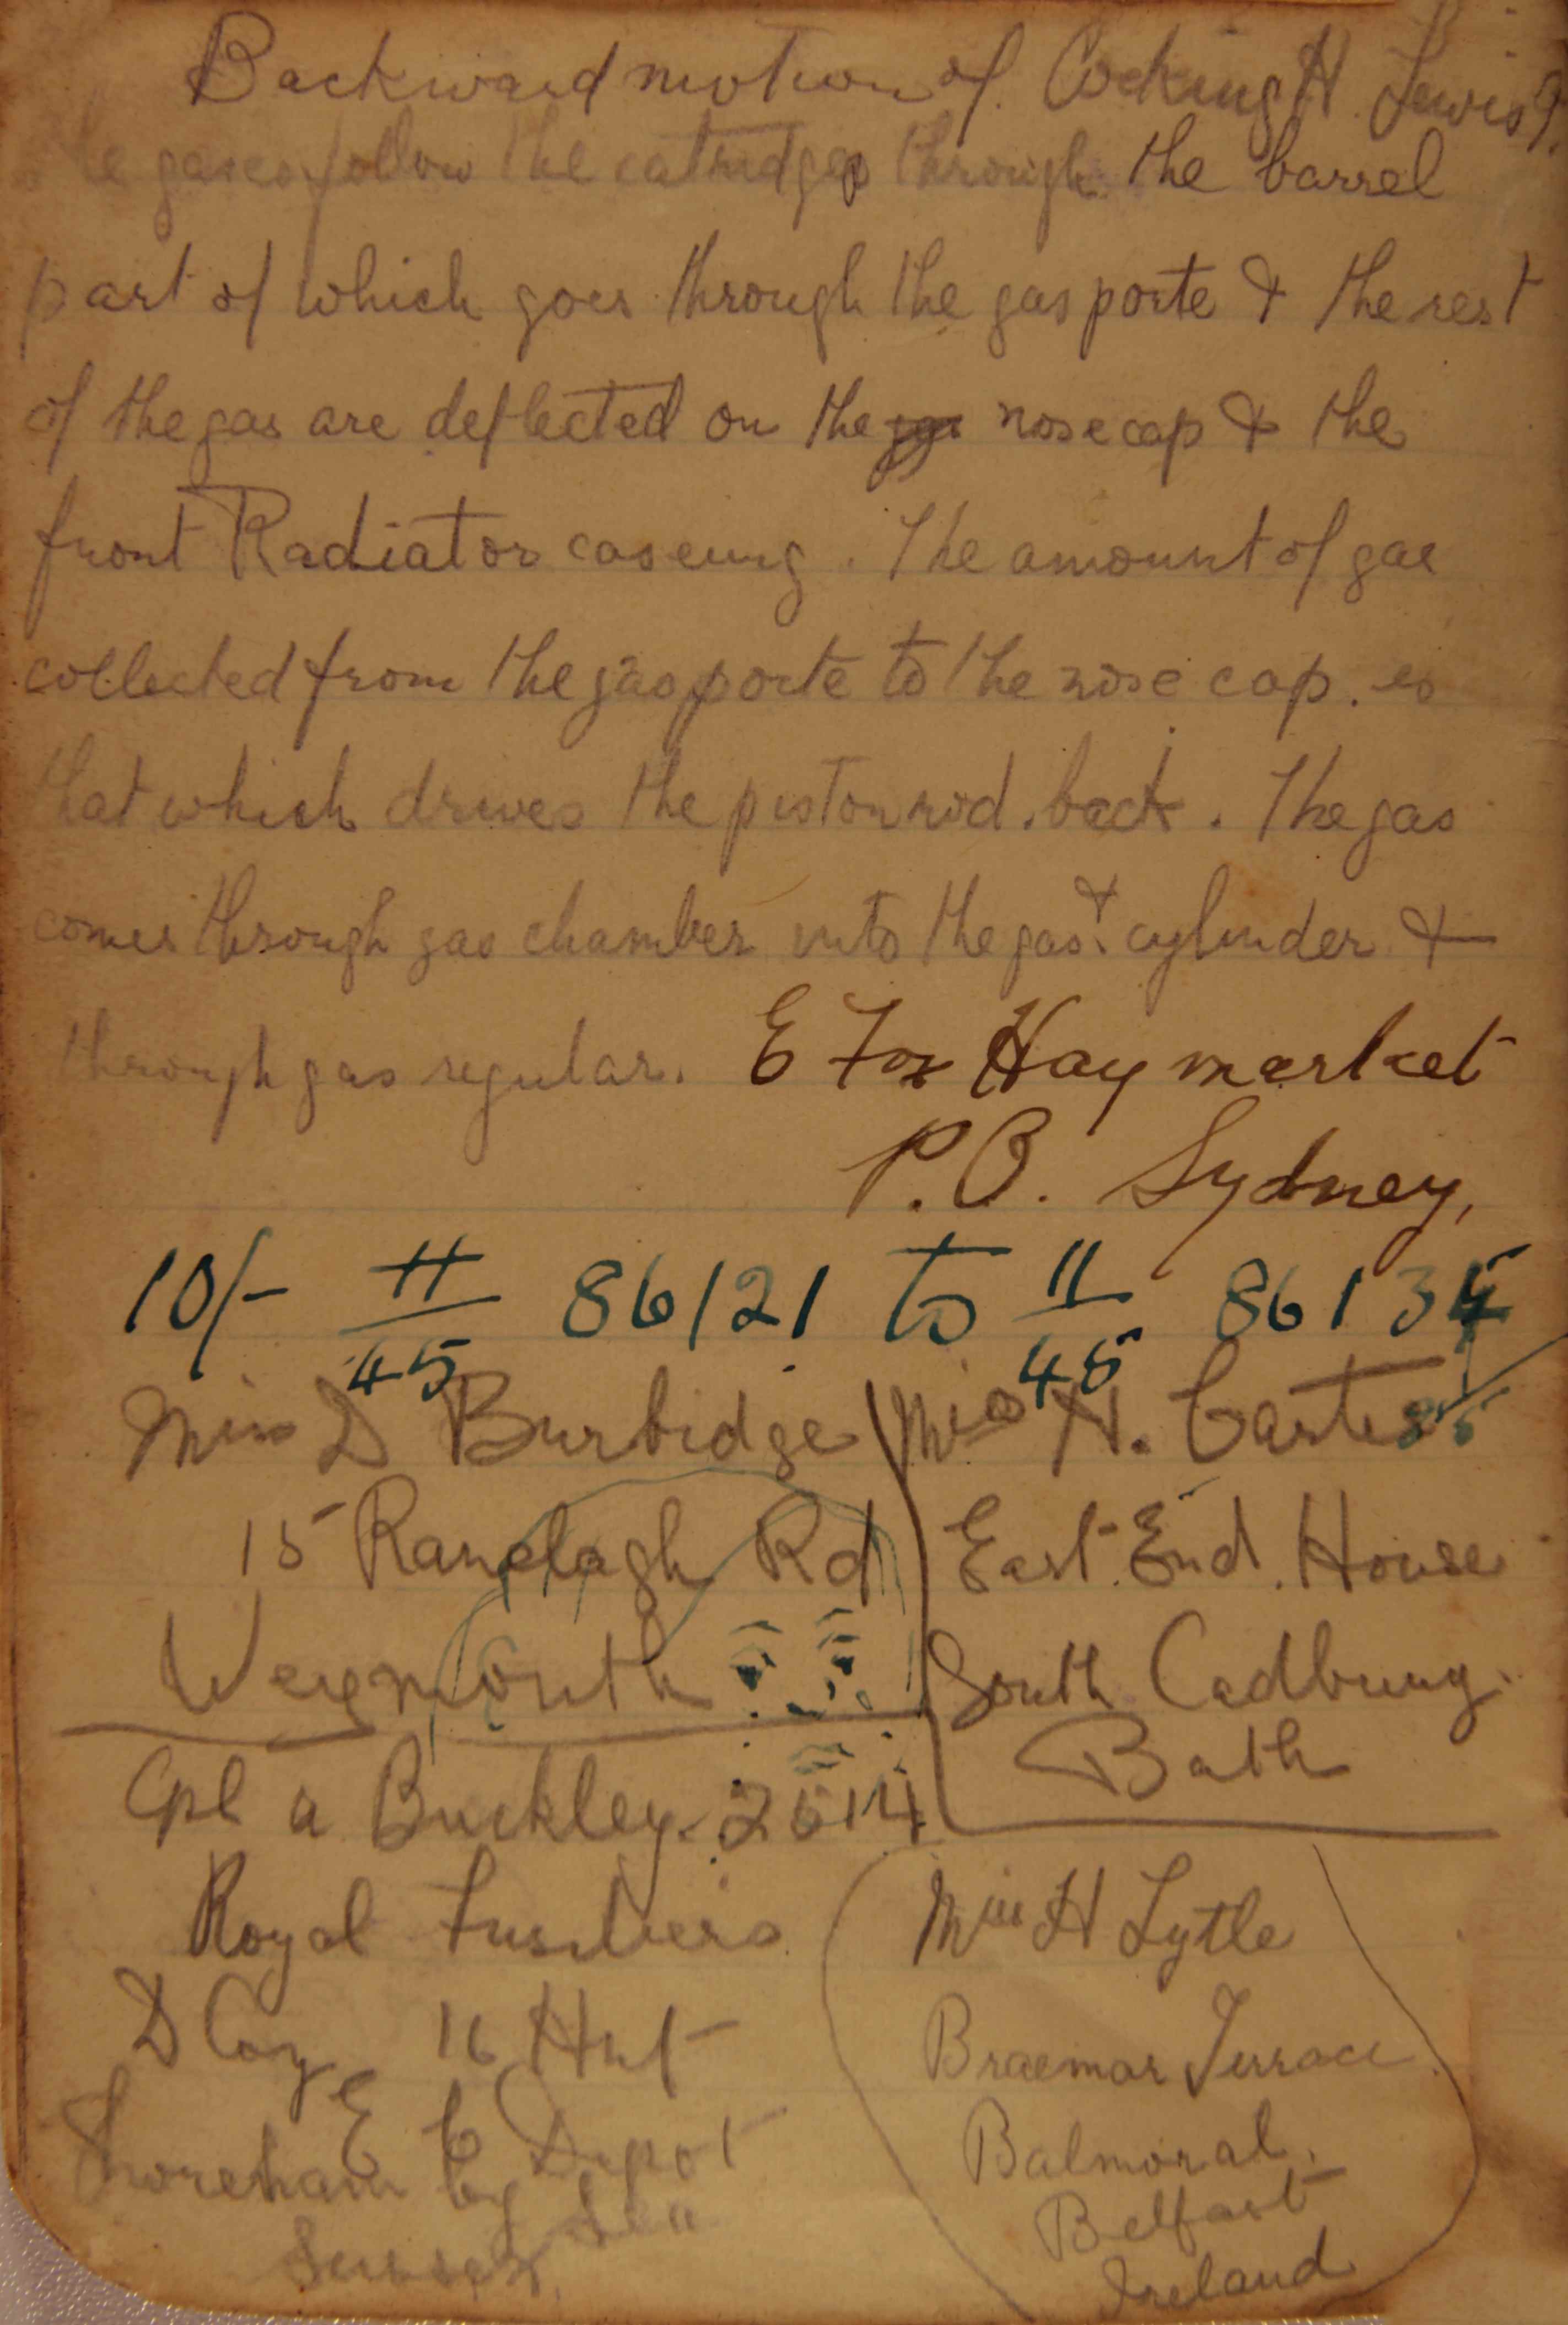 Backward motion of. Cocking H Lewis G.
the gases follow the catridges through the barrel
part of which goes through the gas porte & the rest
of the gas are deflected on the nose cap & the
front Radiator caseing. The amount of gas
collected from the gas porte to the nose cap. is
that which drives the piston rod. back. The gas
comes through gas chamber into the gas & cylinder &
through gas regular.
E Fox Haymarket
P.O. Sydney,
10/- 11/45 86121 to 11/45 86134
Miss D Burbidge
15 Ranelagh Rd
Weymouth
Miss N. Carter
East End. House
South Cadbury.
Bath
Cpl A Buckley. 2514
Royal Fusiliers
D Coy 16 Hut
E C Depot
Shoreham by Sea
Sussex.
Miss H Lytle
Braemar Terrace.
Balmoral.
Belfast
Ireland